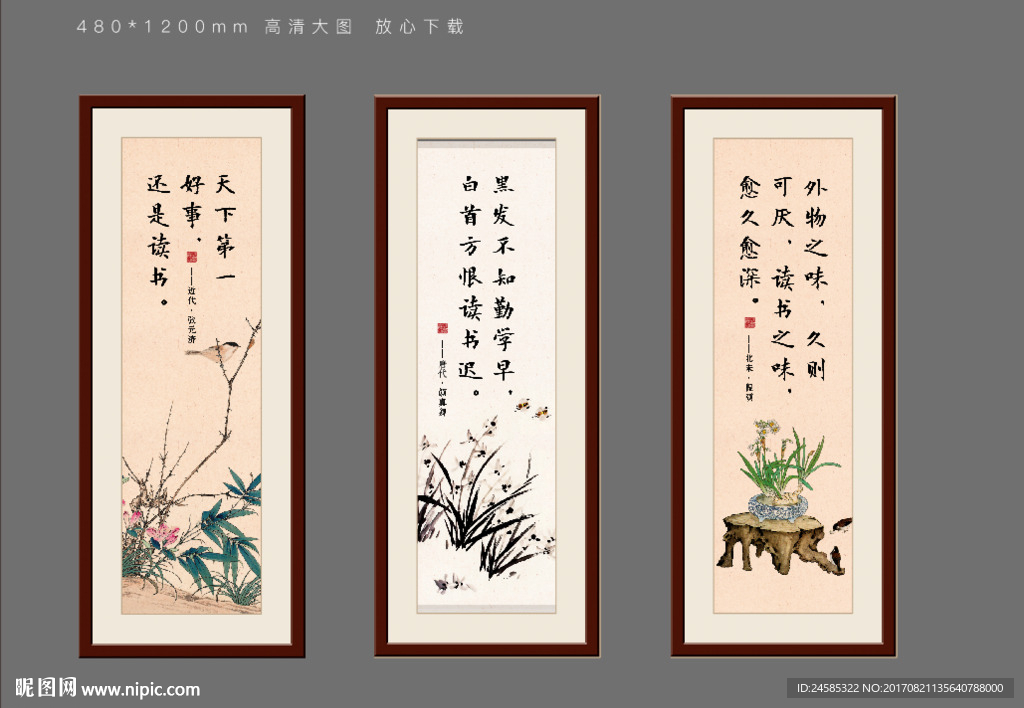 480*1200mm 高清大图 放心下载
天下第一
好事，
还是读书。
——近代·张元济
黑发不知勤学早，
白首方恨读书迟。
——唐代·颜真卿
外物之味，久则
可厌，读书之味，
愈久愈深。
——北宋·程颐
昵图网 www.nipic.com
ID:24585322 NO:20170821135640788000